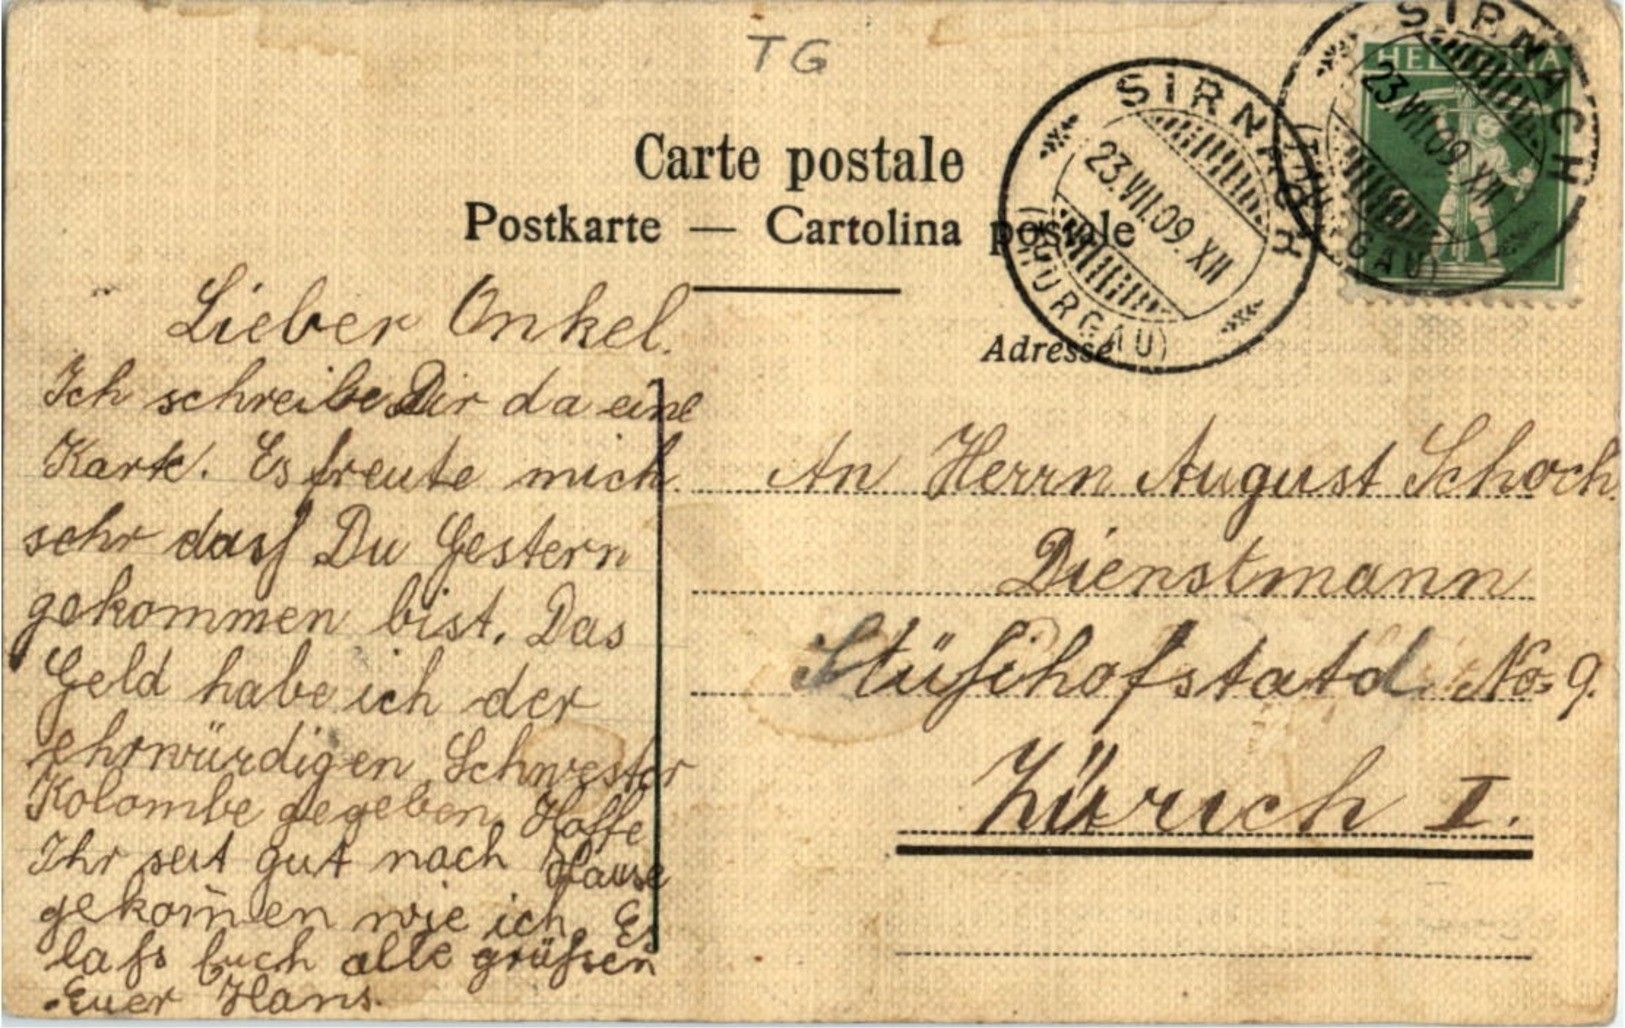 TG
Carte postale
Postkarte — Cartolina postale
Adresse
SIRNACH
23.VIII.09. XII
(THURGAU)
HELVETIA
SIRNACH
23.VIII.09. XII
(THURGAU)
Lieber Onkel.
Ich schreibe Dir da eine
Karte. Es freute mich
sehr dass Du Gestern
gekommen bist. Das
Geld habe ich der
ehrwürdigen Schwester
Kolombe gegeben. Hoffe
Ihr seit gut nach Hause
gekom̄en wie ich. Es
lafs Euch alle grüfsen
Euer Hans.
An Herrn August Schoch
Dienstmann
Stüfsihofstatd No 9.
Zürich I.